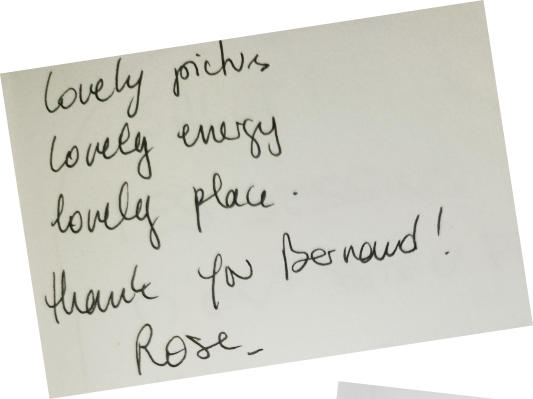 lovely pictures
lovely energy
lovely place.
thank you Bernard!
Rose_